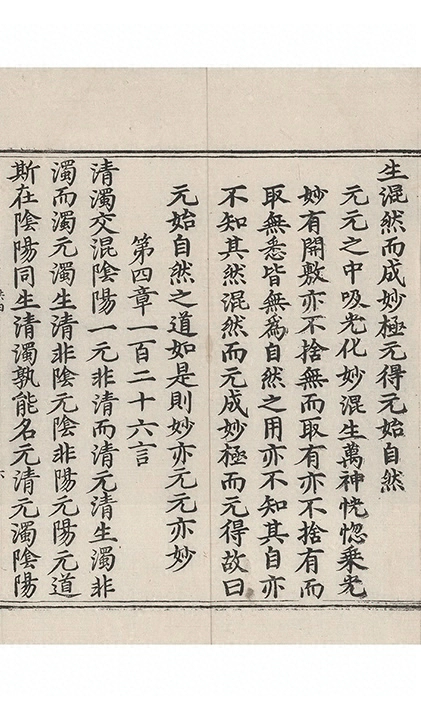 生混然而成妙極元得元始自然
元元之中吸光化妙混生萬神恍惚乗光
妙有開敷亦不捨無而取有亦不捨有而
取無悉皆無為自然之用亦不知其自亦
不知其然混然而元成妙極而元得故曰
元始自然之道如是則妙亦元元亦妙
第四章一百二十六言
清濁交混陰陽一元非清而清元清生濁非
濁而濁元濁生清非陰元陰非陽元陽元道
斯在陰陽同生清濁孰能名元清元濁陰陽